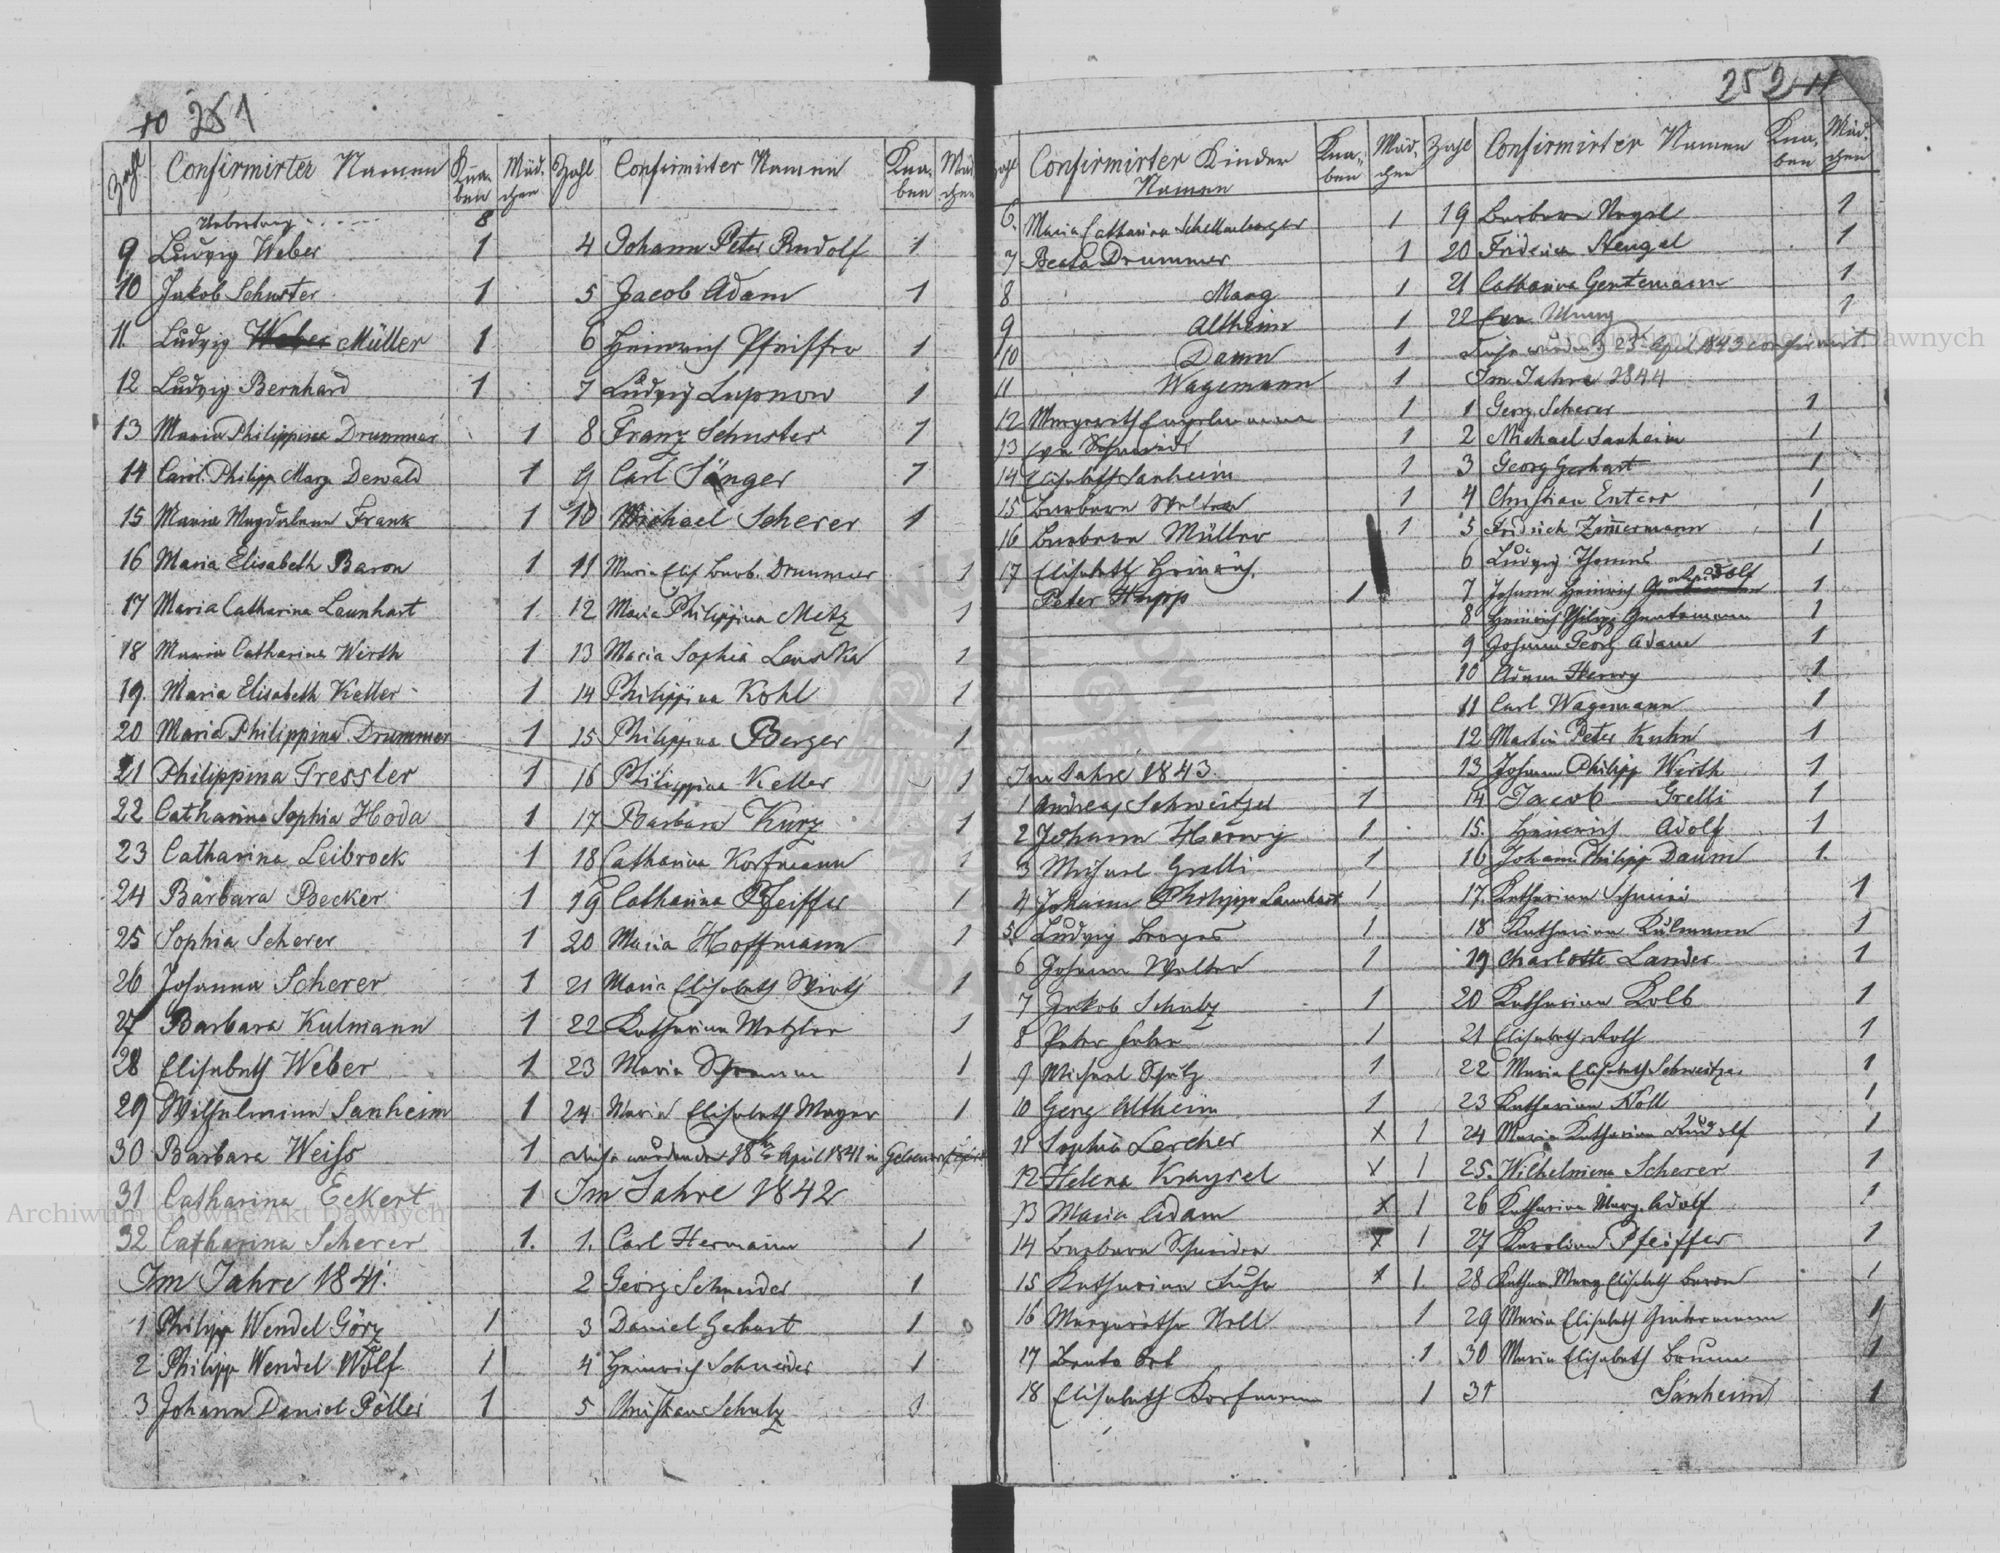 10 251
Zahl Confirmirter Namen Knaben Mädchen
Uebertrag 8
9 Ludvig Weber 1
10 Jakob Schuster 1
11 Ludvig Weber Müller 1
12 Ludvig Bernhard 1
13 Maria Philippina Drummer 1
14 Carol. Philipp Marg Dewald 1
15 Maria Magdalena Frank 1
16 Maria Elisabeth Baron 1
17 Maria Catharina Leunhart 1
18 Maria Catharina Wirth 1
19. Maria Elisabeth Keller 1
20 Maria Philippina Drummer 1
21 Philippina Tressler 1
22 Catharina Sophia Hoda 1
23 Catharina Leibrock 1
24 Barbara Becker 1
25 Sophia Scherer 1
26 Johanna Scherer 1
27 Barbara Kulmann 1
28 Elisabeth Weber 1
29 Wilhelmina Sanheim 1
30 Barbara Weiss 1
31 Catharina Eckert 1
32 Catharina Scherer 1.
Im Jahre 1841.
1 Philipp Wendel Görz 1
2 Philipp Wendel Wolf 1
3 Johann Daniel Pöller 1
Zahl Confirmirter Namen Knaben Mädchen
4 Johann Peter Rudolf 1
5 Jacob Adam 1
6 Heinrich Pfeiffer 1
7 Ludvig Lupnow 1
8 Franz Schuster 1
9 Carl Sänger 1
10 Michael Scherer 1
11 Maria Elis Barb. Drummer 1
12 Maria Philippina Metz 1
13 Maria Sophia Lenska 1
14 Philippina Kohl 1
15 Philippina Berger 1
16 Philippina Keller 1
17 Barbara Kurz 1
18 Catharina Korfmann 1
19 Catharina Pfeiffer 1
20 Maria Hoffmann 1
21 Maria Elisabeth Wirth 1
22 Katharina Metzler 1
23 Maria Schramm 1
24 Maria Elisabeth Mayer 1
diese wurden den 18ten April 1841 in
Im Jahre 1842
1. Carl Hermann 1
2 Georg Schneider 1
3 Daniel Gerhart 1
4 Heinrich Schneider 1
5 Christian Schulz 1
252 11
Zahl Confirmirter Kinder Namen Knaben Mädchen
6. Maria Catharina Schellenberger 1
7 Beata Drummer 1
8 Mang 1
9 Altheim 1
10 Damm 1
11 Wagemann 1
12 Margareth Engelmann 1
13 Eva Schmidt 1
14 Elisabeth Sanheim 1
15 Barbara Walter 1
16 Barbara Müller 1
17 Elisabeth Heinrich.
Peter Hupp 1
Im Jahre 1843.
1 Andreas Schweitzer 1
2 Johann Herwy 1
3 Michael Grelli 1
4 Johann Philipp Launhart 1
5. Ludvig Borger 1
6 Johann Walter 1
7 Jakob Schulz 1
8 Peter Fuhr 1
9 Michael Schulz 1
10 Georg Altheim 1
11 Sophia Lercher x 1
12 Helena Kraysel x 1
13 Maria Adam x 1
14 Barbara Schneider x 1
15 Katharina Fuhr x 1
16 Margaretha Noll 1
17 Beata Orb 1
18 Elisabeth Korfmann 1
Zahl Confirmirter Namen Knaben Mädchen
19 Barbara Nagel 1
20 Friderica Stengel 1
21 Catharina Gentemann 1
22 Eva Mang 1
Diese wurden d 23 April 1843 confirmirt.
Im Jahre 1844
1 Georg Scherer 1
2 Michael Sanheim 1
3 Georg Gerhart 1
4 Christian Enters 1
5 Fridrich Zimmermann 1
6 Ludvig Thomas 1
7 Johann Heinrich Rudolf 1
8 Heinrich Philipp Gentemann 1
9 Johann Georg Adam 1
10 Adam Herwy 1
11 Carl Wagemann 1
12 Martin Peter Kuhn 1
13 Johann Philipp Wirth 1
14 Jacob Grelli 1
15. Heinrich Adolf 1
16 Johann Philipp Daum 1.
17. Katharina Schmidt 1
18 Katharina Külmann 1
19 Charlotte Lander 1
20 Katharina Kolb 1
21 Elisabeth Roth 1
22 Maria Elisabeth Schweitzer 1
23 Katharina Noll 1
24 Maria Katharina Rudolf 1
25. Wilhelmina Scherer 1
26 Katharina Marg. Adolf 1
27 Karolina Pfeiffer 1
28 Kathar. Marg Elisabeth Baron 1
29 Maria Elisabeth Gentemann 1
30 Maria Elisabeth Baum 1
31 Sanheim 1
Archiwum Główne Akt Dawnych
Archiwum Główne Akt Dawnych